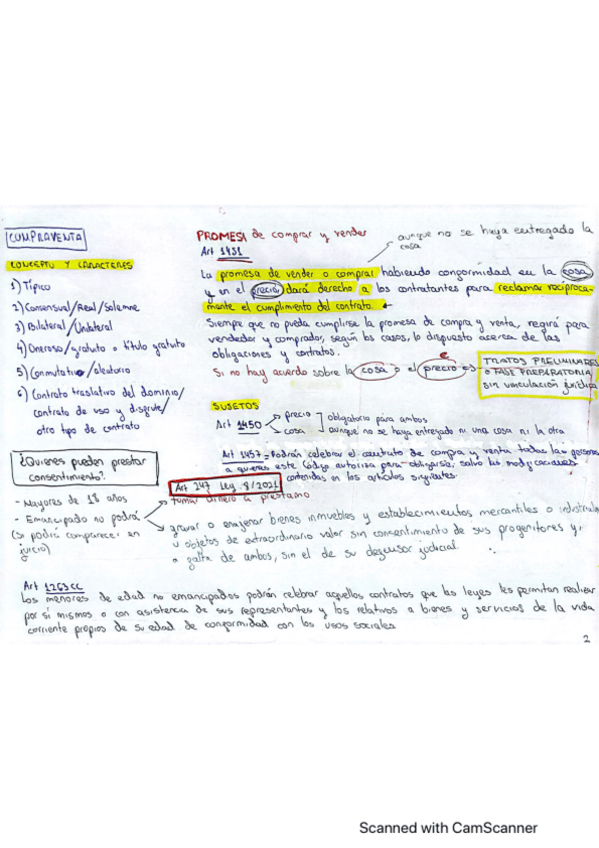 COMPRAVENTA
CONCEPTO Y CARACTERES
1) Típico
2) Consensual/Real/Solemne
3) Bilateral/Unilateral
4) Oneroso/gratuito o título gratuito
5) Conmutativo/aleatorio
6) Contrato traslativo del dominio/
contrato de uso y disfrute/
otro tipo de contrato
PROMESA de comprar y vender
Art 1451
aunque no se haya entregado la
cosa
La promesa de vender o comprar habiendo conformidad en la cosa
y en el precio dará derecho a los contratantes para reclamar recíproca-
mente el cumplimiento del contrato.
Siempre que no pueda cumplirse la promesa de compra y venta, regirá para
vendedor y comprador, según los casos, lo dispuesto acerca de las
obligaciones y contratos.
Si no hay acuerdo sobre la cosa o el precio es
TRATOS PRELIMINARES
o FASE PREPARATORIA
sin vinculación jurídica
SUJETOS
Art 1450
precio
cosa
obligatorio para ambos
aunque no se haya entregado ni una cosa ni la otra
Art 1457 = Podrán celebrar el contrato de compra y venta todas las personas
a quienes este Código autoriza para obligarse, salvo las modificaciones
contenidas en los artículos siguientes.
¿Quienes pueden prestar
consentimiento?
Art 247 Ley 8/2021
- Mayores de 18 años
- Emancipado no podrá
(Si podía comparecer en
juicio)
tomar dinero a préstamo
gravar o enajenar bienes inmuebles y establecimientos mercantiles o industriales
u objetos de extraordinario valor sin consentimiento de sus progenitores y,
a falta de ambos, sin el de su defensor judicial.
Art 1263 CC
Los menores de edad no emancipados podrán celebrar aquellos contratos que las leyes les permitan realizar
por sí mismos o con asistencia de sus representantes y los relativos a bienes y servicios de la vida
corriente propios de su edad de conformidad con los usos sociales
2
Scanned with CamScanner